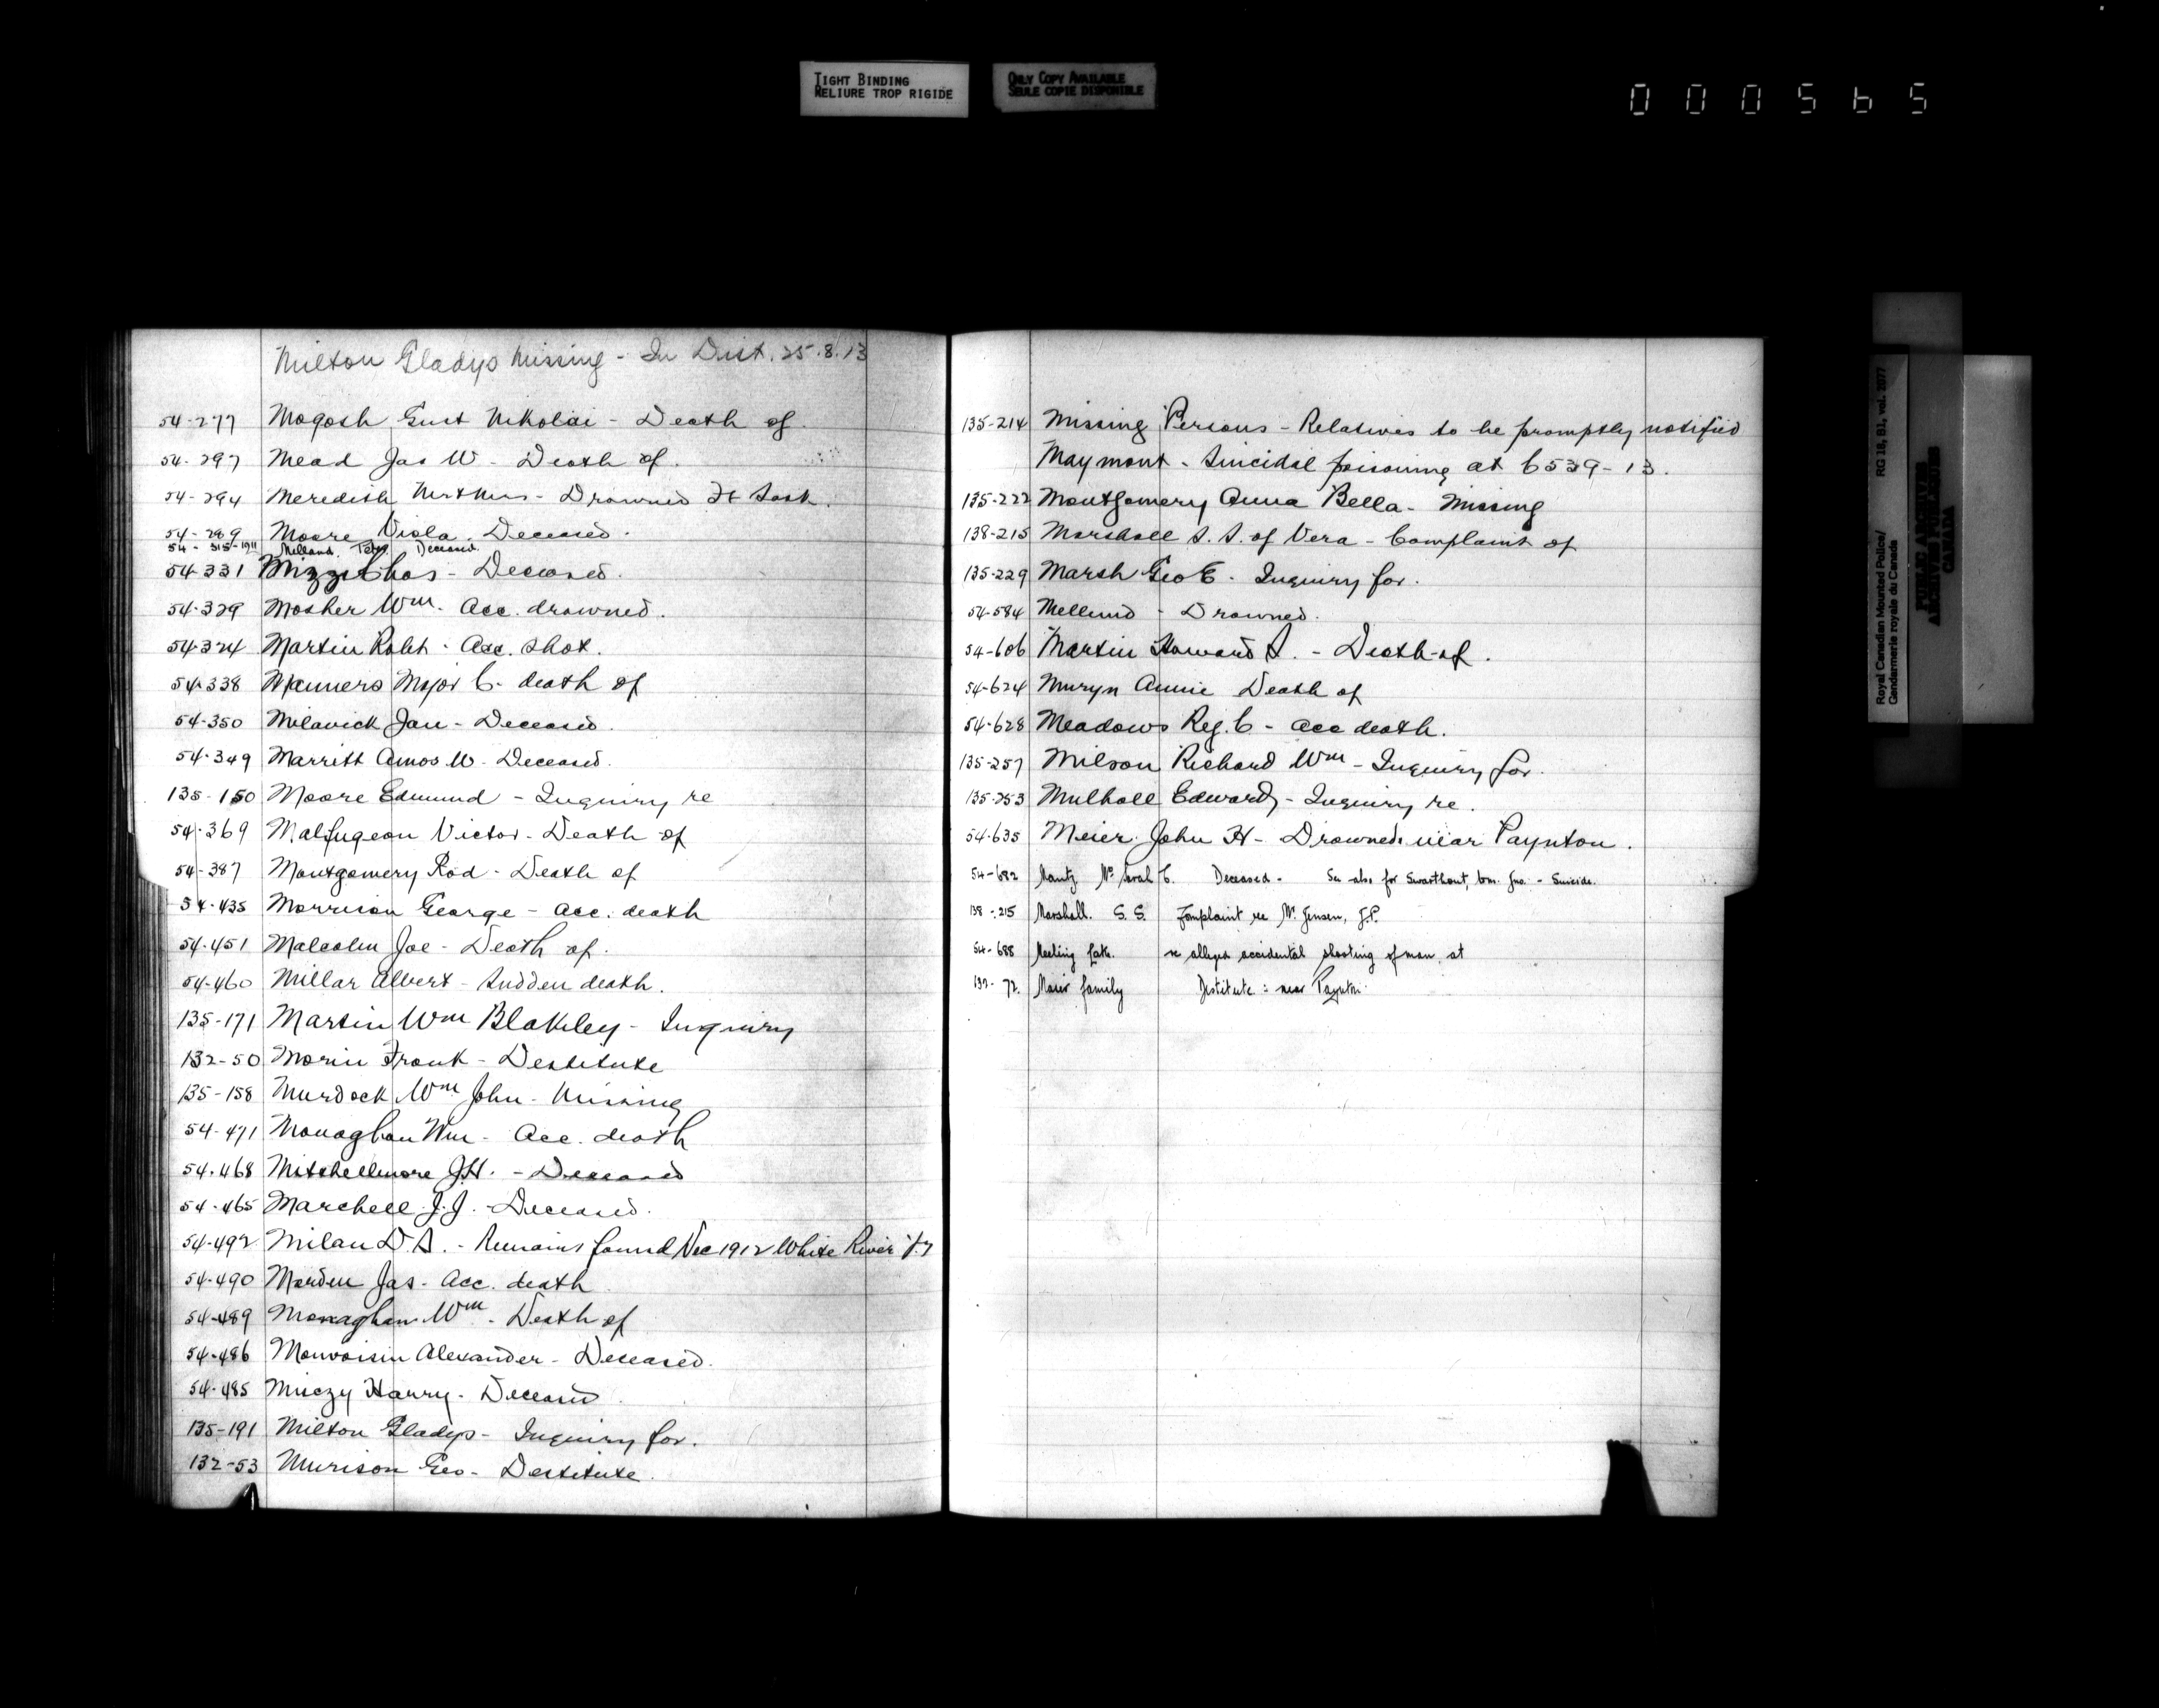 TIGHT BINDING
RELIURE TROP RIGIDE
ONLY COPY AVAILABLE
SEULE COPIE DISPONIBLE
000565
Milton Gladys Missing - In Dist. 25.8.13
54-277 Mogosh Gust Nikolai - Death of
54-297 Mead Jas W - Death of.
54-294 Meredith - Drowned Ft Sask.
54-289 Moore Viola. Deceased.
54-315-1911 Melland, Deceased.
54-331 Mizzi Chas - Deceased.
54-329 Mosher Wm. Acc. drowned.
54-324 Martin Robt - Acc. shot.
54-338 Manners Major C. death of
54-350 Milavick Jan - Deceased.
54-349 Marritt Amos W - Deceased.
135-150 Moore Edmund - Inquiry re
54-369 Malfugeon Victor - Death of
54-387 Montgomery Rod - Death of
54-435 Morrison George - Acc. death
54-451 Malcolm Joe - Death of.
54-460 Millar Albert - Sudden death.
135-171 Martin Wm Blakeley - Inquiry
132-50 Morin Frank - Destitute
135-158 Murdock Wm John - Missing
54-471 Monaghan Wm - Acc. death
54-468 Mitchellmore J.H. - Deceased
54-465 Marchell J.J. - Deceased.
54-492 Milan D.A. - Remains found Dec 1912 White River Y.T
54-490 Morden Jas - Acc. death
54-489 Monaghan Wm - Death of
54-486 Monvoisin Alexander - Deceased.
54-485 Miczy Harry - Deceased
135-191 Milton Gladys - Inquiry for.
132-53 Murison Geo - Destitute.
135-214 Missing Persons - Relatives to be promptly notified
Maymont - Suicidal poisoning at 6539-13.
135-222 Montgomery Anna Bella - Missing
138-215 Marshall S.S. of Vera - Complaint of
135-229 Marsh Geo E - Inquiry for.
54-584 Mellund - Drowned.
54-606 Martin Howard A. - Death of.
54-624 Muryn Annie Death of
54-628 Meadows Reg. C - acc death.
135-257 Milson Richard Wm - Inquiry for.
135-253 Mulhall Edward - Inquiry re.
54-635 Meier John H - Drowned near Paynton.
54-682 Mantz Mrs Sarah C. Deceased - See also for Swarthout, Wm. Jno. - Suicide.
138-215 Marshall. S.S. Complaint re Mr. Jensen, J.P.
54-688 Meeting Lake. re alleged accidental shooting of man at
132-72. Maier family Destitute : near Paynton.
Royal Canadian Mounted Police/ RG 18, B1, vol. 2077
Gendarmerie royale du Canada
PUBLIC ARCHIVES
ARCHIVES PUBLIQUES
CANADA